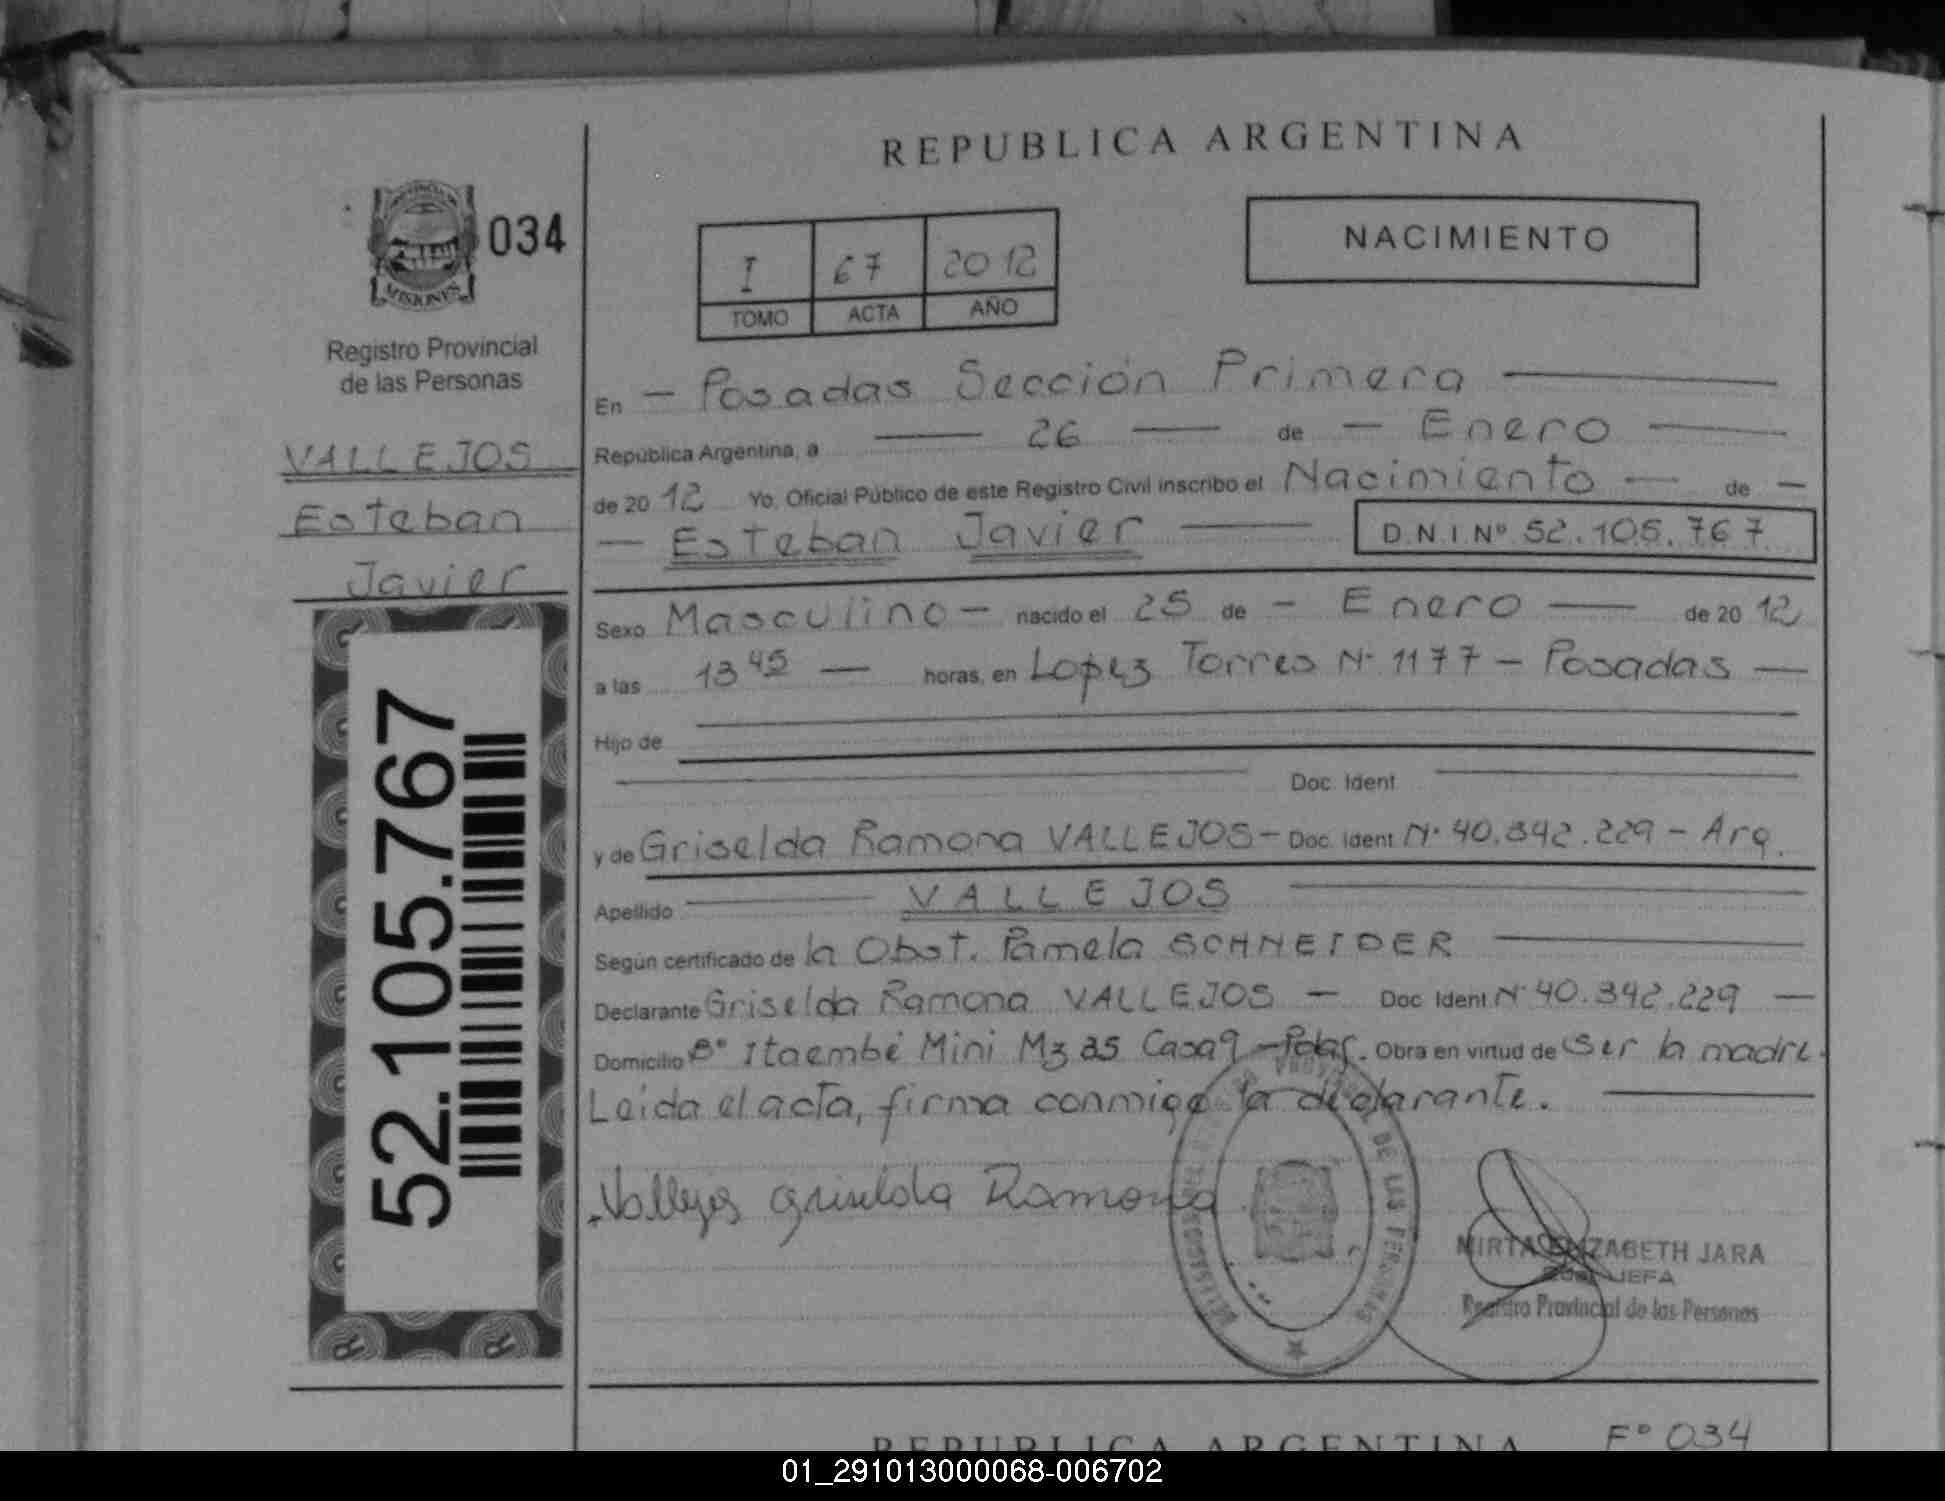 REPUBLICA ARGENTINA
MISIONES
034
Registro Provincial
de las Personas
VALLEJOS
Esteban
Javier
52.105.767
NACIMIENTO
I 67 2012
TOMO ACTA AÑO
En — Posadas Sección Primera —
República Argentina, a — 26 — de — Enero —
de 20 12 Yo, Oficial Público de este Registro Civil inscribo el Nacimiento — de —
— Esteban Javier — D.N.I.Nº 52.105.767
Sexo Masculino — nacido el 25 de — Enero — de 20 12
a las 13 45 — horas, en Lopez Torres Nº 1177 — Posadas —
Hijo de
Doc. Ident
y de Griselda Ramona VALLEJOS - Doc. Ident Nº 40.342.229 - Arg.
Apellido — VALLEJOS —
Según certificado de la Obst. Pamela SCHNEIDER —
Declarante Griselda Ramona VALLEJOS — Doc. Ident Nº 40.342.229 —
Domicilio Bº Itaembé Mini Mz 35 Casa 9 - Pdas. Obra en virtud de ser la madre.
Leida el acta, firma conmigo la declarante. —
Vallejos Griselda Ramona
DE LAS PERSONAS
MIRTA ELIZABETH JARA
JEFA
Registro Provincial de las Personas
REPUBLICA ARGENTINA
Fº 034
01_291013000068-006702